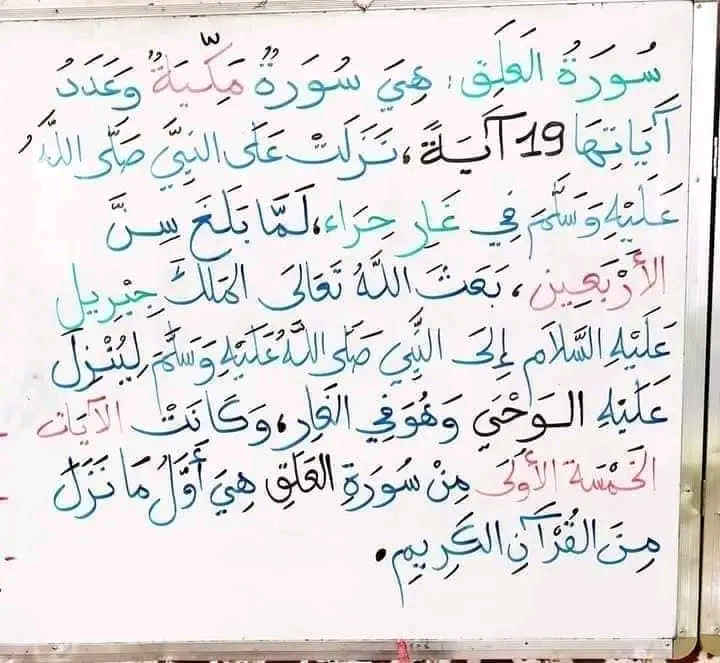 سُورَةُ العَلَقِ: هِيَ سُورَةٌ مَكِّيَةٌ وَعَدَدُ
آيَاتِهَا 19 آيَةً، نَزَلَتْ عَلَى النَّبِيِّ صَلَّى اللَّهُ
عَلَيْهِ وَسَلَّمَ فِي غَارِ حِرَاء، لَمَّا بَلَغَ سِنَّ
الأَرْبَعِين، بَعَثَ اللَّهُ تَعَالَى المَلَكَ جِبْرِيل
عَلَيْهِ السَّلَام إِلَى النَّبِي صَلَّى اللَّهُ عَلَيْهِ وَسَلَّمَ لِيُنْزِلَ
عَلَيْهِ الوَحْيَ وَهُوَ فِي الغَارِ، وَكَانَتْ الآيَات
الخَمْسَة الأُولَى مِنْ سُورَةِ العَلَقِ هِيَ أَوَّلُ مَا نَزَلَ
مِنَ القُرْآنِ الكَرِيمِ.